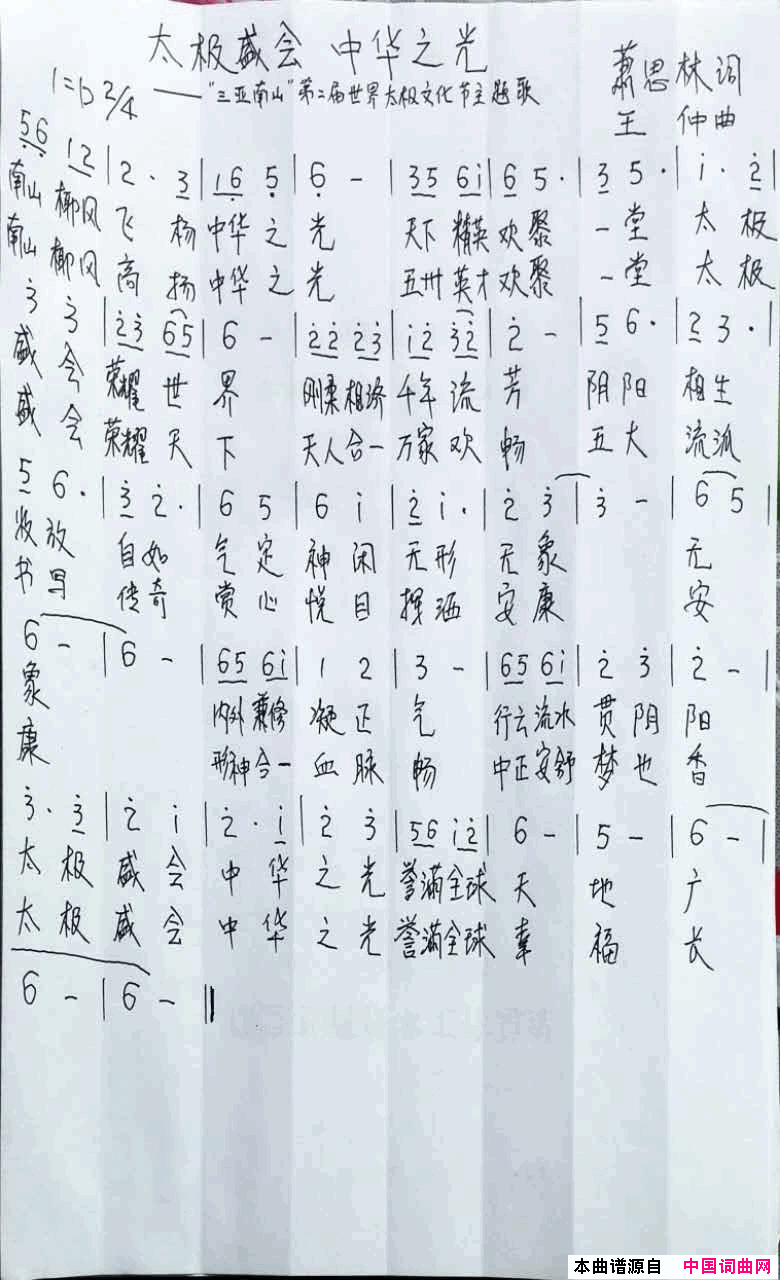 太极盛会 中华之光
——"三亚南山"第二届世界太极文化节主题歌
1=D 2/4
萧思林词
王 仲曲
5̣6̣ 12 | 2 · 3 | 16̣ 5̣ | 6̣ - | 35 6i | 6 5 · | 3 5 · | i · 2̇ |
南山 椰风 飞 杨 中华 之 光 天下 精英 欢聚 一堂 太 极
南山 椰风 高 扬 中华 之 光 五卅 英才 欢聚 一堂 太 极
3̇ 3̇ | 2̇3̇ 65 | 6 - | 2̇2̇ 2̇3̇ | i2̇ 3̇2̇ | 2̇ - | 5 6 · | 2̇ 3̇ · |
盛 会 荣耀 世 界 刚柔 相济 千年 流 芳 阴阳 相生
盛 会 荣耀 天 下 天人 合一 万家 欢 畅 五大 流派
5 6 · | 3̇ 2̇ · | 6 5 | 6 i | 2̇ i · | 2̇ 3̇ | 3̇ - | 6 5 |
收放 自如 气 定 神 闲 无形 无 象 无
书写 传奇 赏 心 悦 目 挥洒 安 康 安
6 - | 6 - | 65 6i | 1 2 | 3 - | 65 6i | 2̇ 3̇ | 2̇ - |
象 内外 兼修 凝 正 气 行云 流水 贯 阴 阳
康 形神 合一 血 脉 畅 中正 安舒 梦 也 香
3̇ · 3̇ | 2̇ i | 2̇ · i | 2̇ 3̇ | 56 i2̇ | 6 - | 5 - | 6 - |
太 极 盛 会 中 华 之 光 誉满 全球 天 地 广
太 极 盛 会 中 华 之 光 誉满 全球 福 长
6 - | 6 - ‖
本曲谱源自 中国词曲网